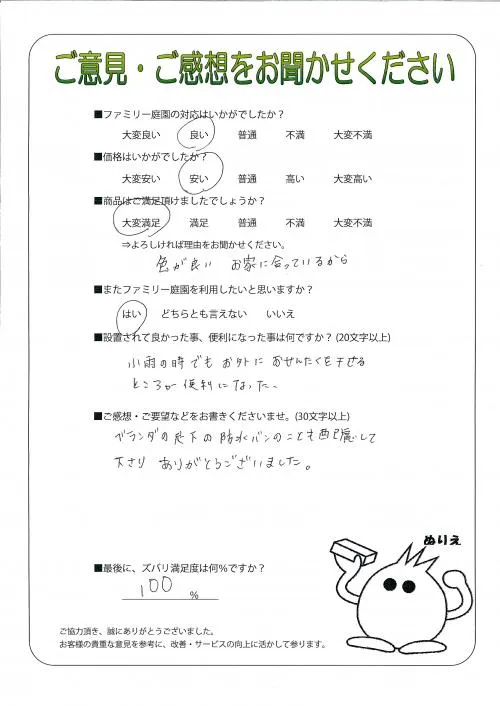 ご意見・ご感想をお聞かせください
■ファミリー庭園の対応はいかがでしたか？
大変良い 良い 普通 不満 大変不満
■価格はいかがでしたか？
大変安い 安い 普通 高い 大変高い
■商品はご満足頂けましたでしょうか？
大変満足 満足 普通 不満 大変不満
⇒よろしければ理由をお聞かせください。
色が良い お家に合っているから
■またファミリー庭園を利用したいと思いますか？
はい どちらとも言えない いいえ
■設置されて良かった事、便利になった事は何ですか？(20文字以上)
小雨の時でもお外におせんたくを干せる
ところが便利になった。
■ご感想・ご要望などをお書きくださいませ。(30文字以上)
ベランダの下の防水パンのことも配慮して
下さり ありがとうございました。
ぬりえ
■最後に、ズバリ満足度は何％ですか？
100 %
ご協力頂き、誠にありがとうございました。
お客様の貴重な意見を参考に、改善・サービスの向上に活かして参ります。